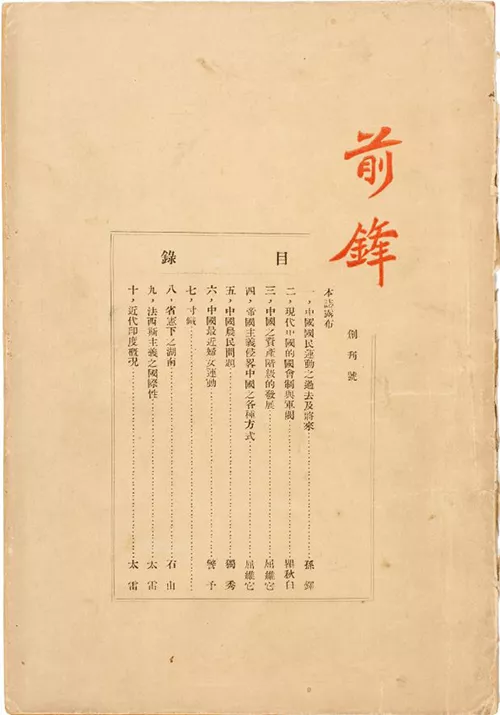 前鋒
創刊號
目錄
本誌露布
一，中國國民運動之過去及將來……孫鐸
二，現代中國的國會制與軍閥……瞿秋白
三，中國之資產階級的發展……屈維它
四，帝國主義侵略中國之各種方式……屈維它
五，中國農民問題……獨秀
六，中國最近婦女運動……警予
七，寸鐵……
八，省憲下之湖南……石山
九，法西斯主義之國際性……太雷
十，近代印度概況……太雷